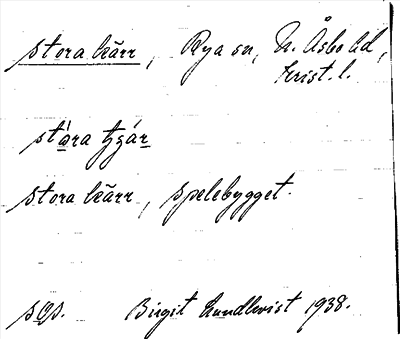 Stora kärr, Rya sn, N. Åsbo hd,
Krist. l.
stára tjǵár
stora kärr, spelebygget.
sOs. Birgit Lundkvist 1938.